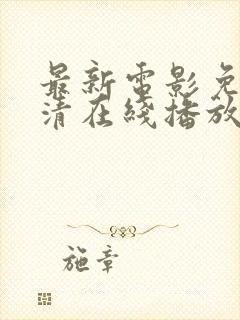 最新電影免
清在綫播放
施章